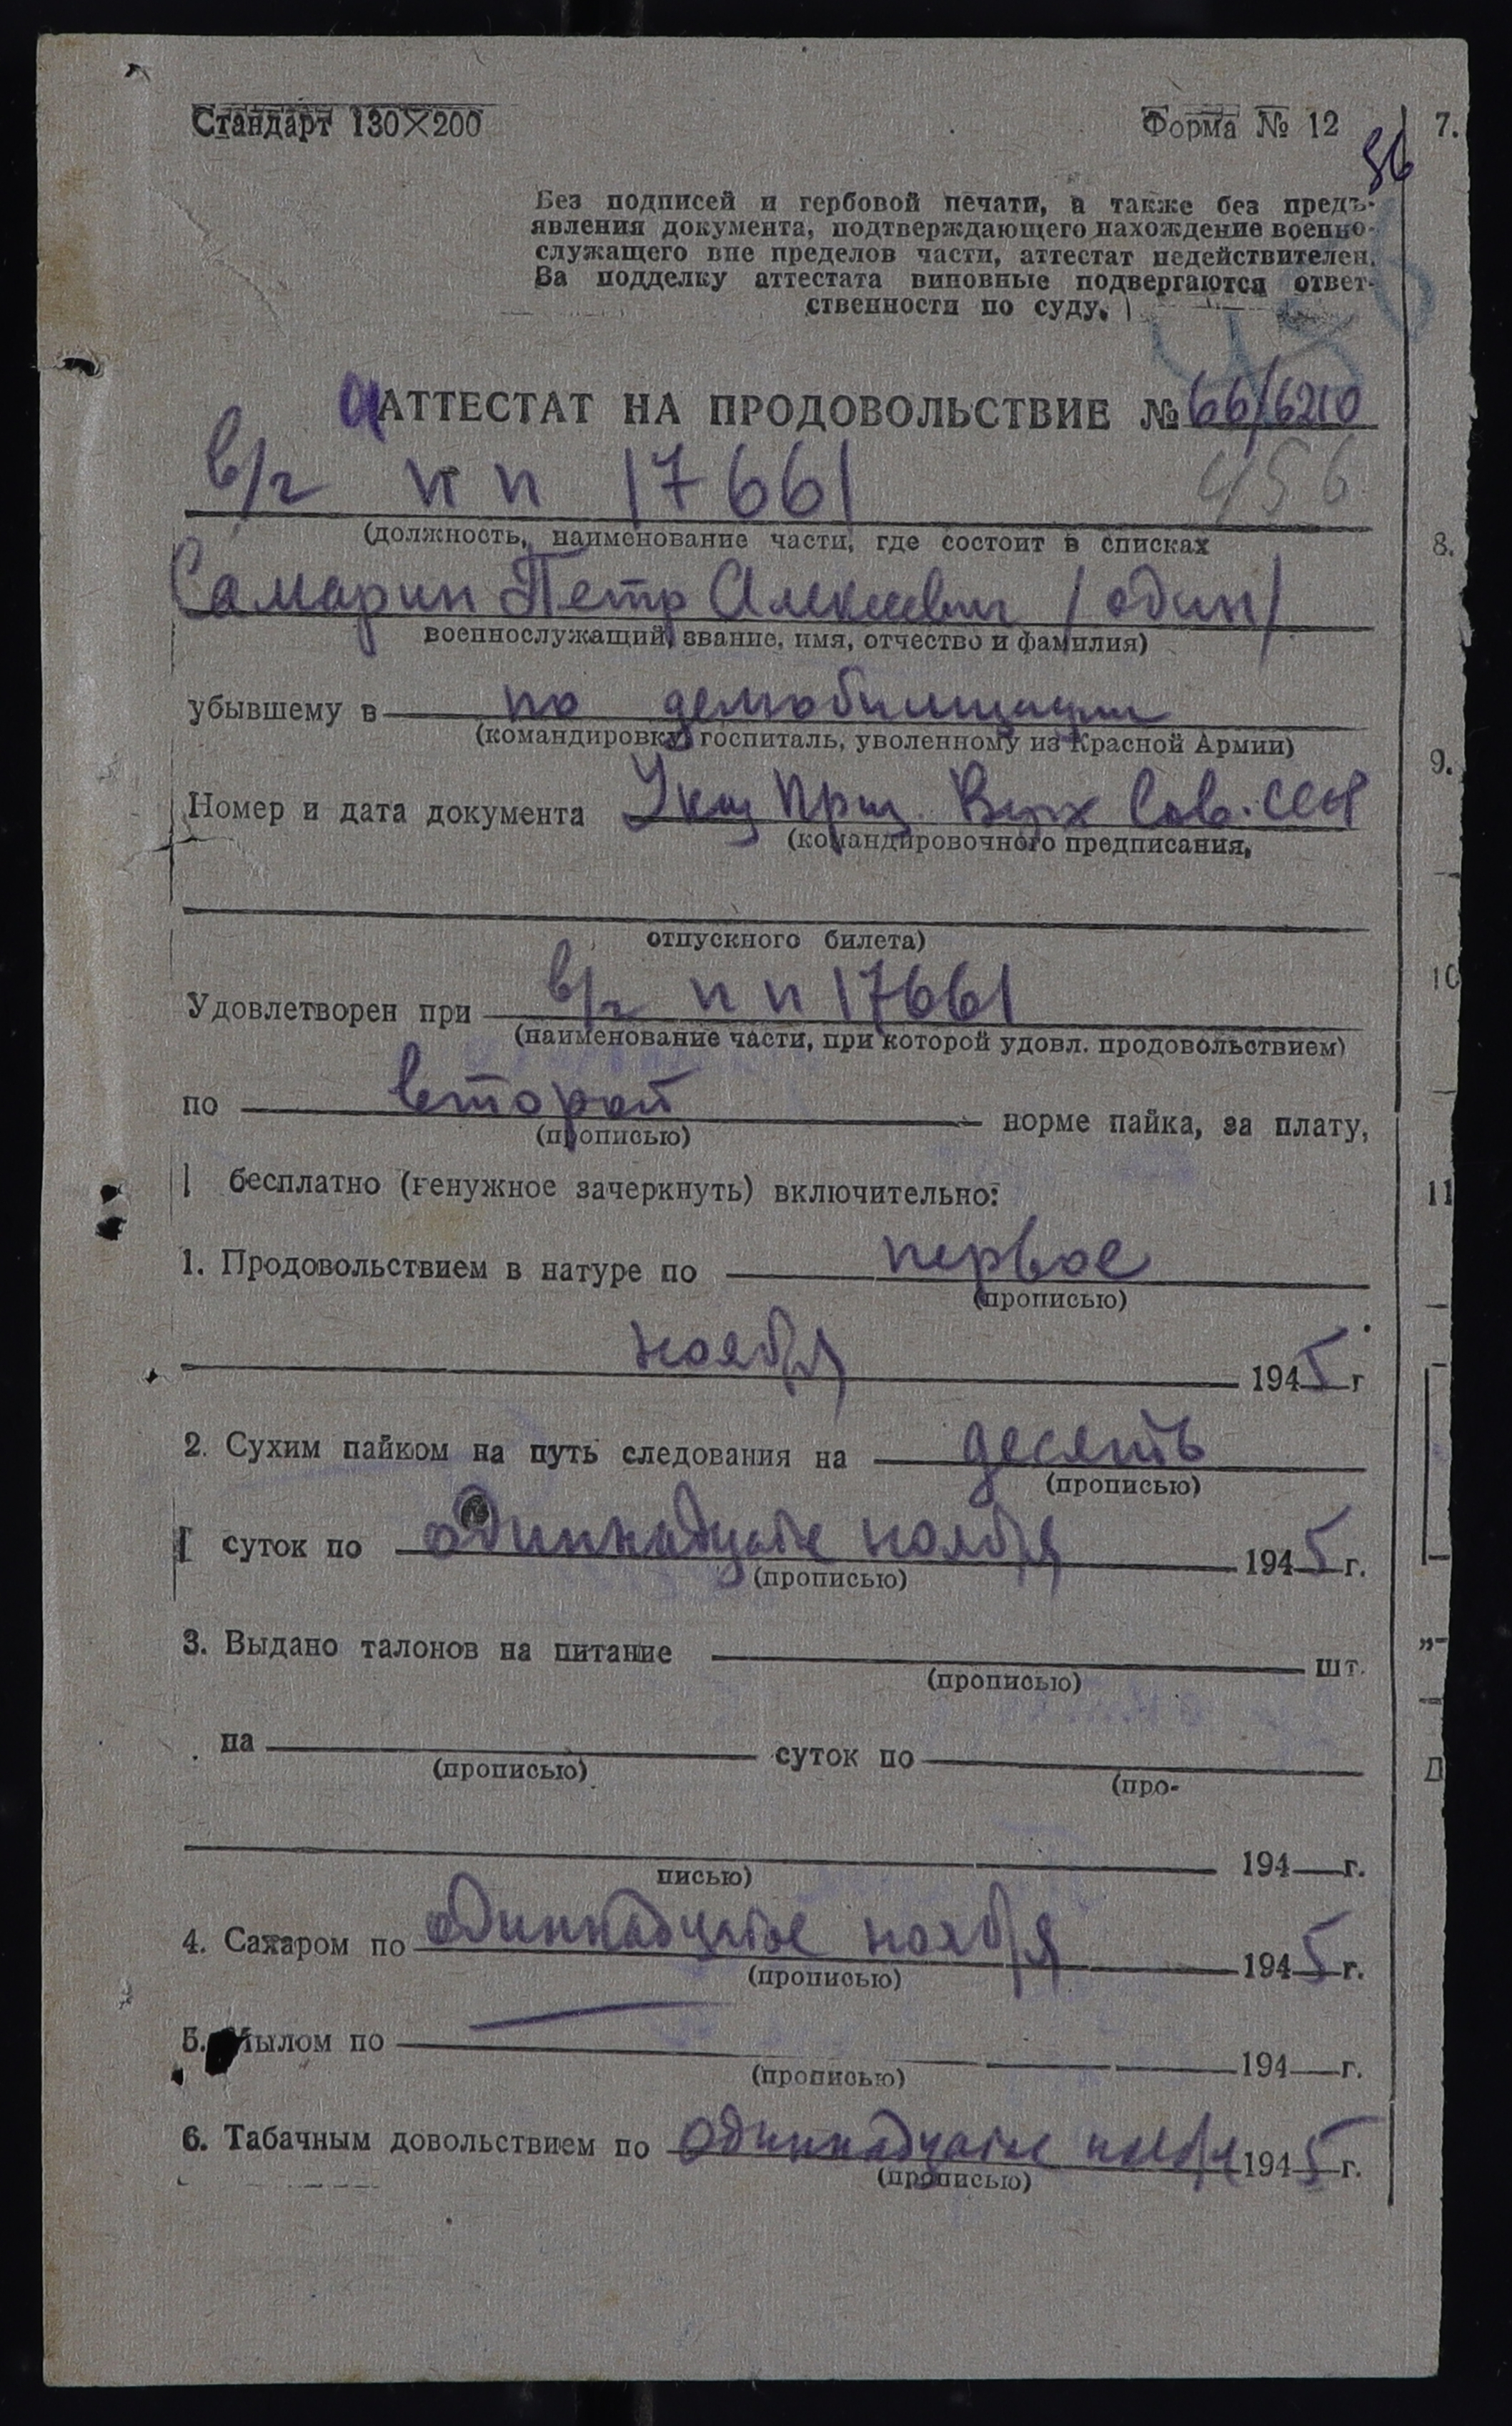 Стандарт 130×200
Форма № 12
56
Без подписей и гербовой печати, а также без предъ-
явления документа, подтверждающего нахождение военно-
служащего вне пределов части, аттестат недействителен.
За подделку аттестата виновные подвергаются ответ-
ственности по суду.
АТТЕСТАТ НА ПРОДОВОЛЬСТВИЕ № 66/6210
в/ч п п 17661
456
(должность, наименование части, где состоит в списках
Самарин Петр Алексеевич /один/
военнослужащий, звание, имя, отчество и фамилия)
убывшему в по демобилизации
(командировку, госпиталь, уволенному из Красной Армии)
Номер и дата документа Указ През. Верх Сов. СССР
(командировочного предписания,
отпускного билета)
Удовлетворен при в/ч п п 17661
(наименование части, при которой удовл. продовольствием)
по второй норме пайка, за плату,
(прописью)
бесплатно (ненужное зачеркнуть) включительно:
1. Продовольствием в натуре по первое
(прописью)
ноября 1945 г
2. Сухим пайком на путь следования на десять
(прописью)
суток по одиннадцатое ноября 1945 г.
(прописью)
3. Выдано талонов на питание шт.
(прописью)
на суток по
(прописью) (про-
194 г.
писью)
4. Сахаром по одиннадцатое ноября 1945 г.
(прописью)
5. Мылом по 194 г.
(прописью)
6. Табачным довольствием по одиннадцатое ноября 1945 г.
(прописью)
7.
8.
9.
10
11
Д